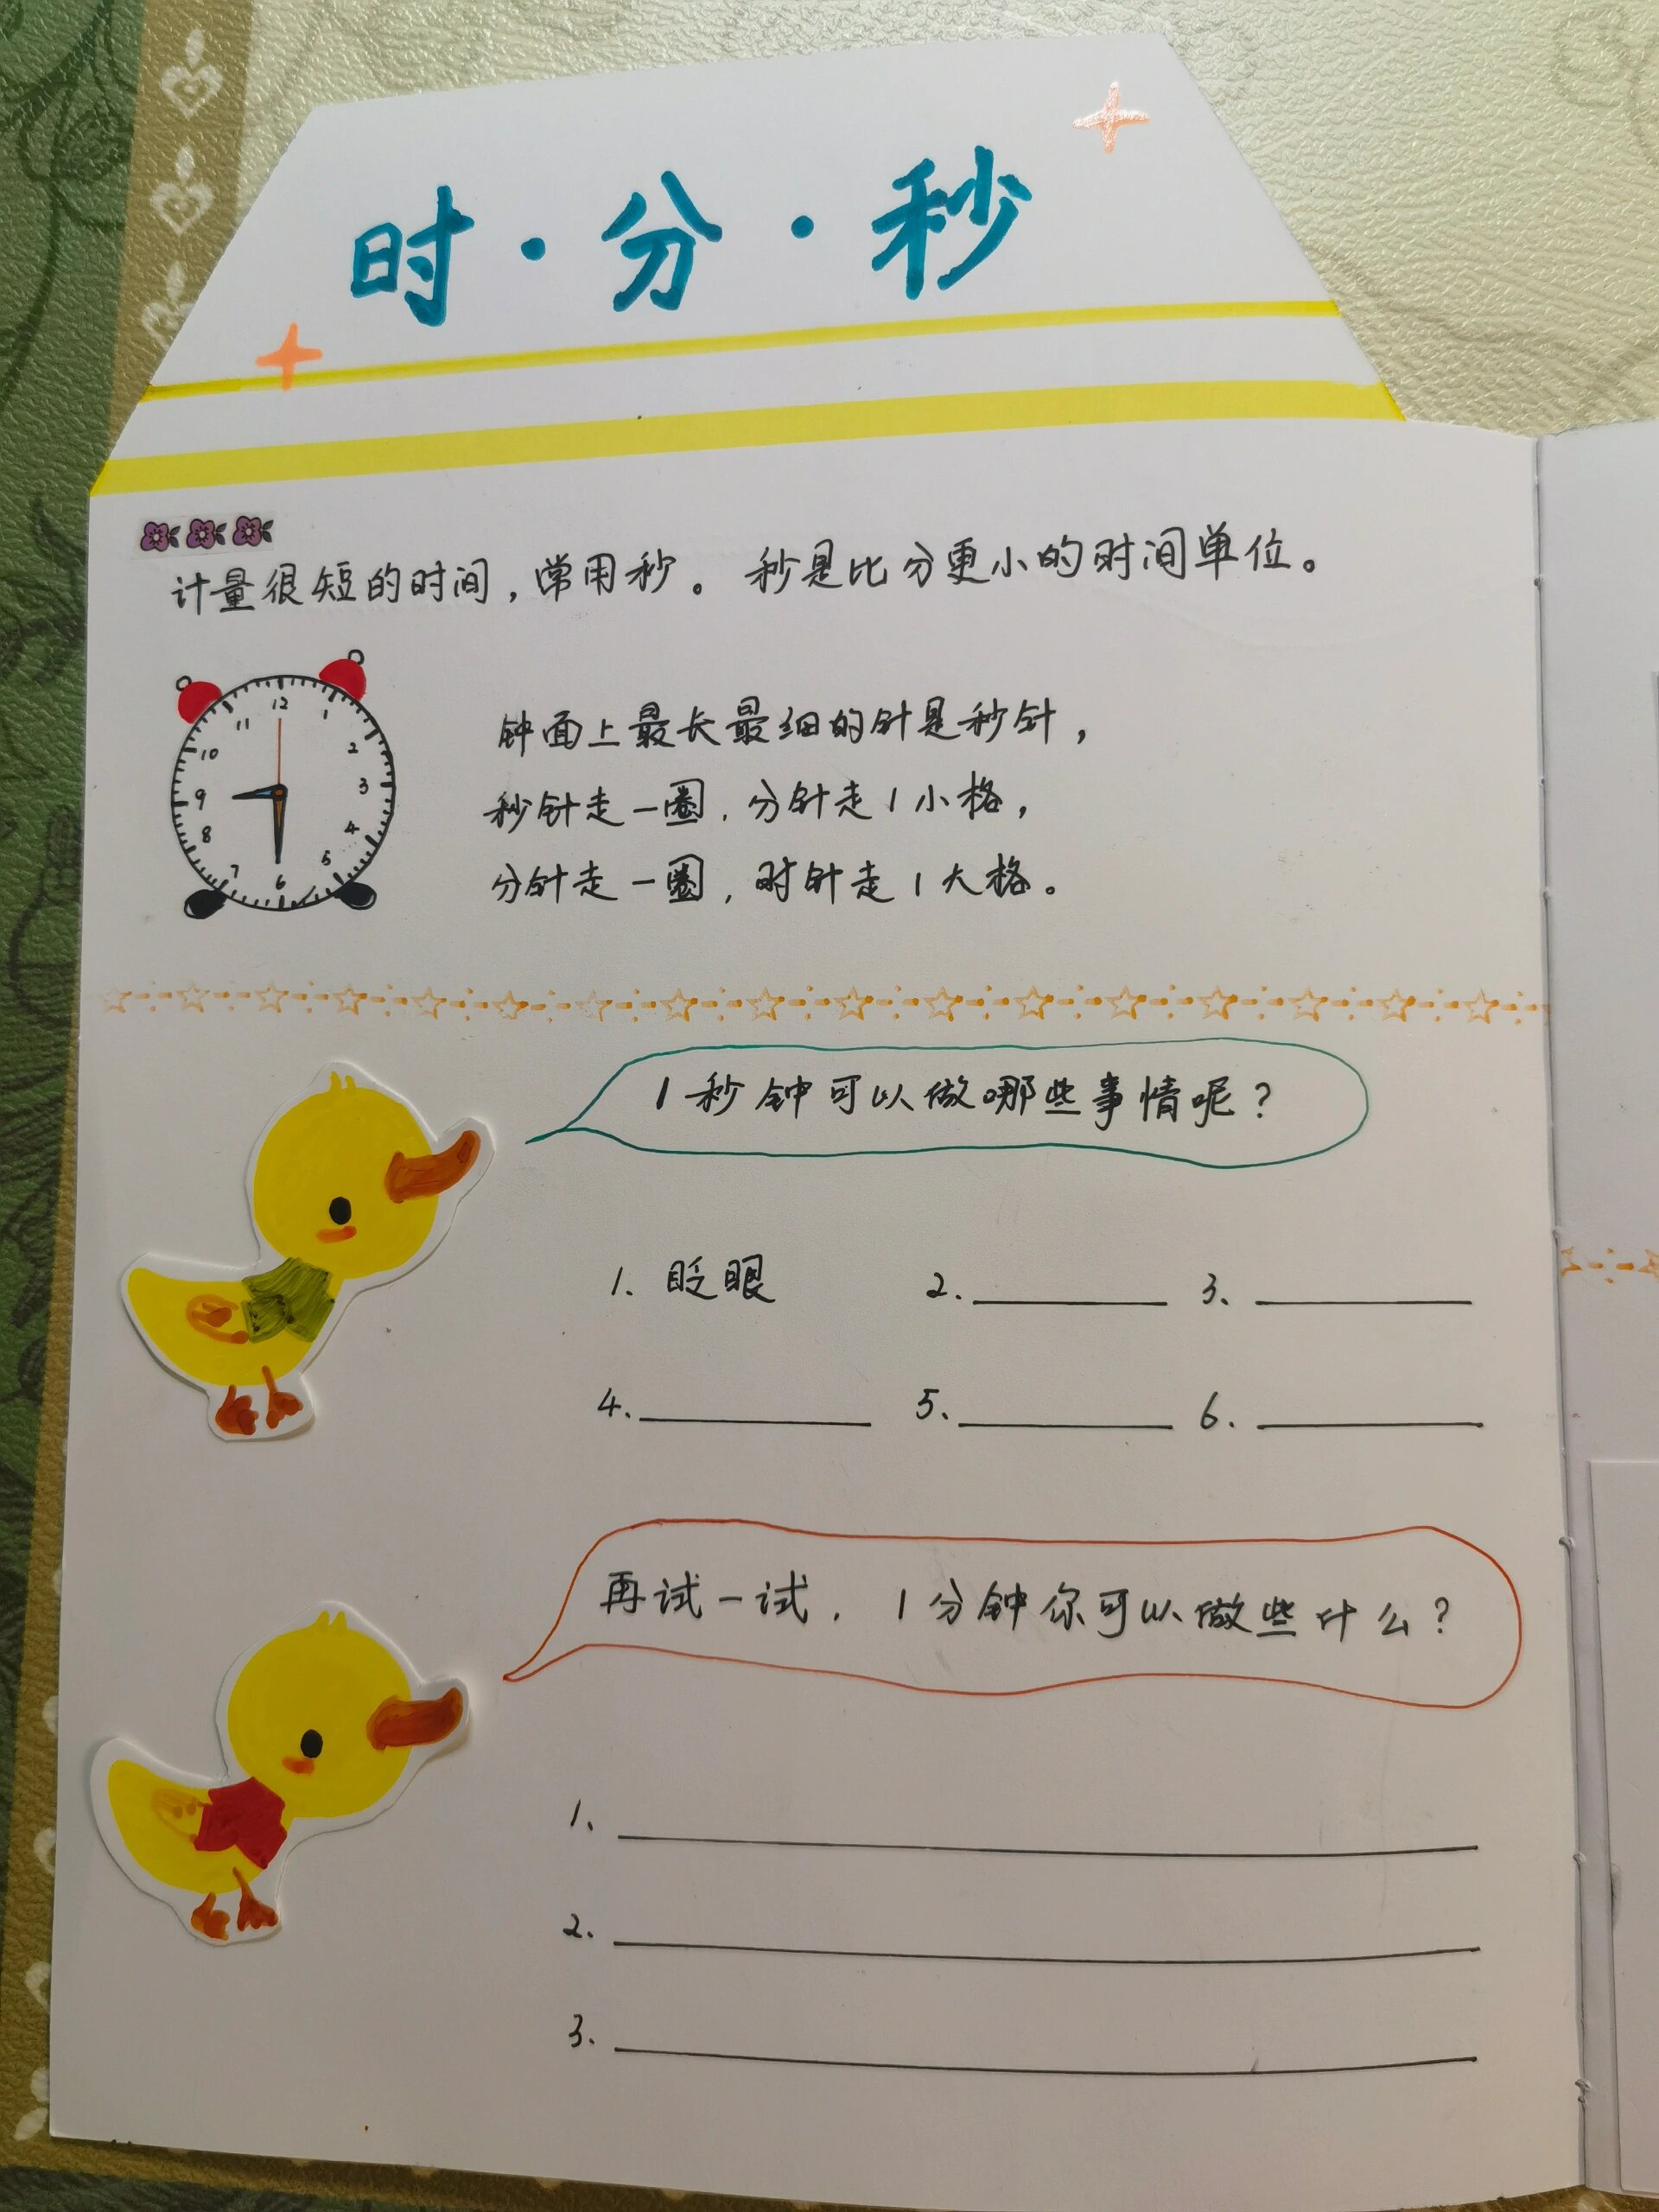 时·分·秒
计量很短的时间，常用秒。秒是比分更小的时间单位。
12
11 1
10 2
9 3
8 4
7 5
6
钟面上最长最细的针是秒针，
秒针走一圈，分针走1小格，
分针走一圈，时针走1大格。
1秒钟可以做哪些事情呢？
1. 眨眼 2. 3.
4. 5. 6.
再试一试，1分钟你可以做些什么？
1.
2.
3.